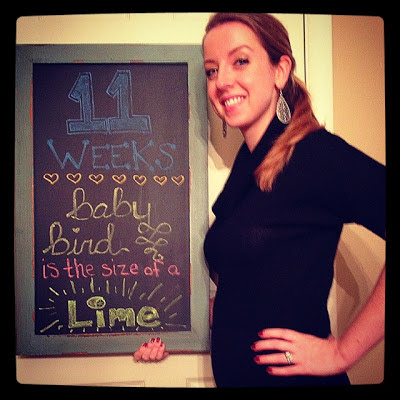 11
WEEKS
baby
bird
is the size of a
Lime